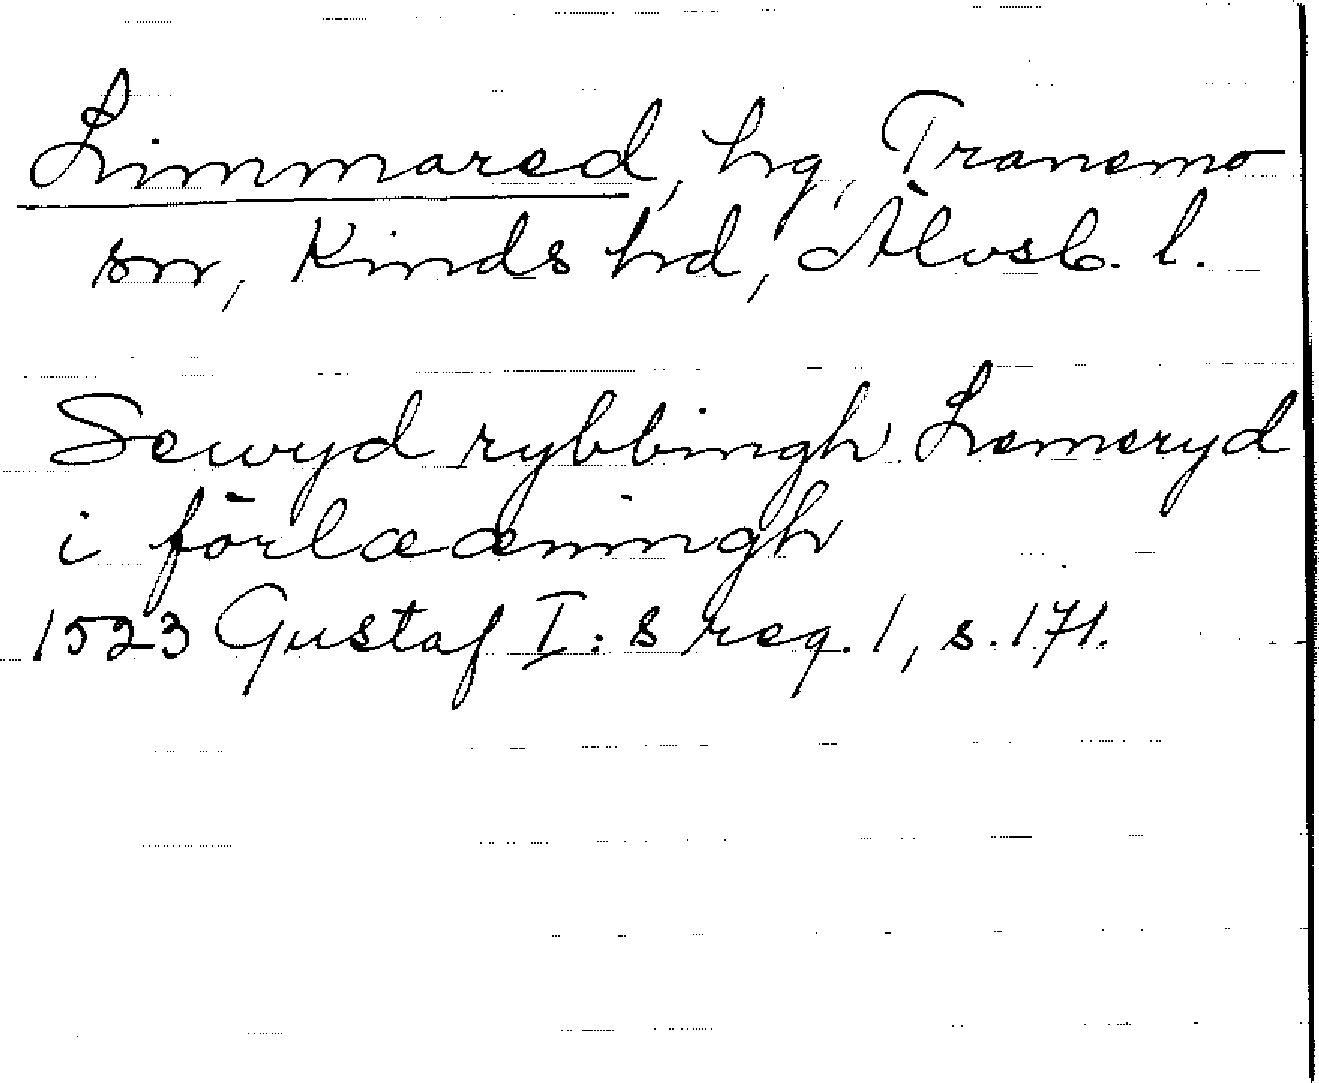 Limmared, hg, Tranemo
sn, Kinds hd, Älvsb. l.
Sewyd rybbingh Lemeryd
i förlææningh
1523 Gustaf I: s reg. 1, s. 171.